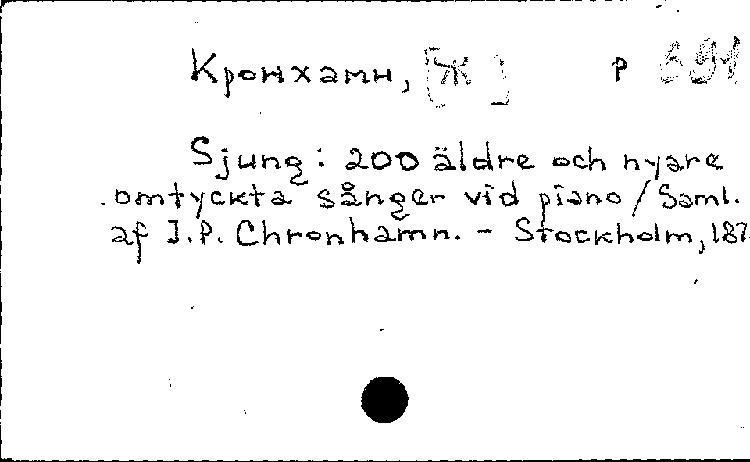 Кронхамн, [Ж] р 691
Sjung: 200 äldre och nyare
omtyckta sånger vid piano / Saml.
af J.P. Chronhamn. - Stockholm, 187